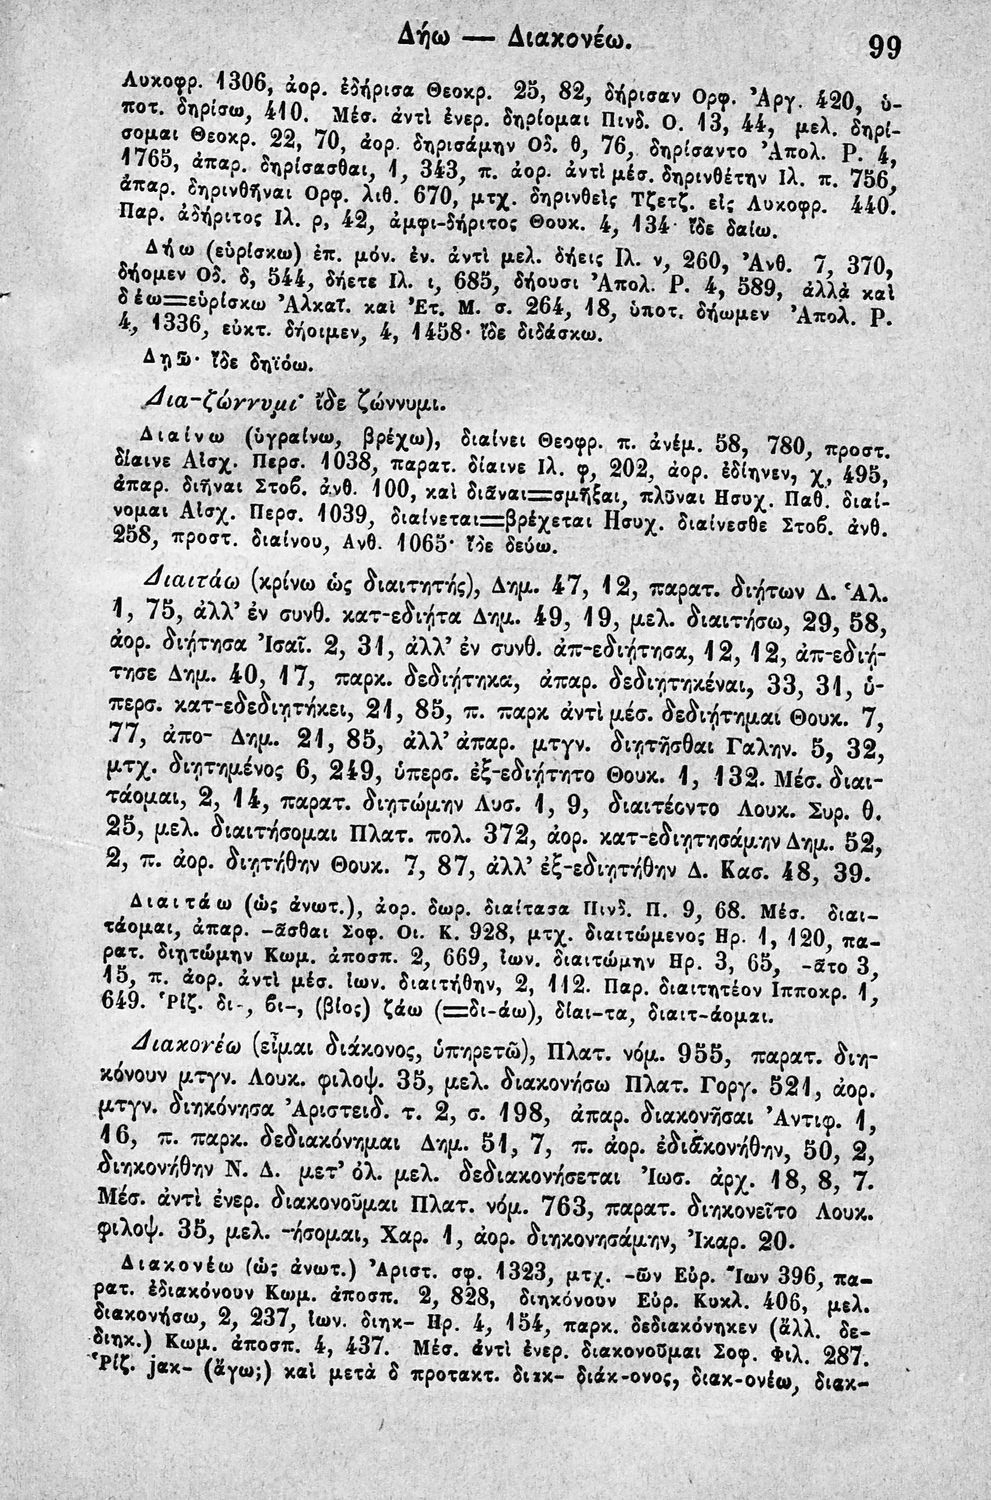 Δήω — Διακονέω. 99
Λυκοφρ. 1306, ἀορ. ἐδήρισα Θεοκρ. 25, 82, δήρισαν Ορφ. Ἀργ. 420, ὑ-
ποτ. δηρίσω, 410. Μέσ. ἀντὶ ἐνερ. δηρίομαι Πινδ. Ο. 13, 44, μελ. δηρί-
σομαι Θεοκρ. 22, 70, ἀορ. δηρισάμην Οδ. θ, 76, δηρίσαντο Ἀπολ. Ρ. 4,
1765, ἀπαρ. δηρίσασθαι, 1, 343, π. ἀορ. ἀντὶ μέσ. δηρινθέτην Ιλ. π. 756,
ἀπαρ. δηρινθῆναι Ορφ. λιθ. 670, μτχ. δηρινθεὶς Τζετζ. εἰς Λυκοφρ. 440.
Παρ. ἀδήριτος Ιλ. ρ, 42, ἀμφι-δήριτος Θουκ. 4, 134· ἴδε δαίω.
Δήω (εὑρίσκω) ἐπ. μόν. ἐν. ἀντὶ μελ. δήεις Ιλ. ν, 260, Ἀνθ. 7, 370,
δήομεν Οδ. δ, 544, δήετε Ιλ. ι, 685, δήουσι Ἀπολ. Ρ. 4, 589, ἀλλὰ καὶ
δέω=εὑρίσκω Ἀλκαῖ. καὶ Ἐτ. Μ. σ. 264, 18, ὑποτ. δήωμεν Ἀπολ. Ρ.
4, 1336, εὐκτ. δήοιμεν, 4, 1458· ἴδε διδάσκω.
Δῃῶ· ἴδε δηϊόω.
Δια-ζώννυμι· ἴδε ζώννυμι.
Διαίνω (ὑγραίνω, βρέχω), διαίνει Θεοφρ. π. ἀνέμ. 58, 780, προστ.
δίαινε Αἰσχ. Περσ. 1038, παρατ. δίαινε Ιλ. φ, 202, ἀορ. ἐδίηνεν, χ, 495,
ἀπαρ. διῆναι Στοβ. ἀνθ. 100, καὶ διᾶναι=σμῆξαι, πλῦναι Ησυχ. Παθ. διαί-
νομαι Αἰσχ. Περσ. 1039, διαίνεται=βρέχεται Ησυχ. διαίνεσθε Στοβ. ἀνθ.
258, προστ. διαίνου, Ανθ. 1065· ἴδε δεύω.
Διαιτάω (κρίνω ὡς διαιτητής), Δημ. 47, 12, παρατ. διῄτων Δ. Ἁλ.
1, 75, ἀλλ’ ἐν συνθ. κατ-εδιῄτα Δημ. 49, 19, μελ. διαιτήσω, 29, 58,
ἀορ. διῄτησα Ἰσαῖ. 2, 31, ἀλλ’ ἐν συνθ. ἀπ-εδιῄτησα, 12, 12, ἀπ-εδιῄ-
τησε Δημ. 40, 17, παρκ. δεδιῄτηκα, ἀπαρ. δεδιῃτηκέναι, 33, 31, ὑ-
περσ. κατ-εδεδιῃτήκει, 21, 85, π. παρκ ἀντὶ μέσ. δεδιῄτημαι Θουκ. 7,
77, ἀπο- Δημ. 21, 85, ἀλλ’ ἀπαρ. μτγν. διῃτῆσθαι Γαλην. 5, 32,
μτχ. διῃτημένος 6, 249, ὑπερσ. ἐξ-εδιῄτητο Θουκ. 1, 132. Μέσ. διαι-
τάομαι, 2, 14, παρατ. διῃτώμην Λυσ. 1, 9, διαιτέοντο Λουκ. Συρ. θ.
25, μελ. διαιτήσομαι Πλατ. πολ. 372, ἀορ. κατ-εδιῃτησάμην Δημ. 52,
2, π. ἀορ. διῃτήθην Θουκ. 7, 87, ἀλλ’ ἐξ-εδιῃτήθην Δ. Κασ. 48, 39.
Διαιτάω (ὡς ἀνωτ.), ἀορ. δωρ. διαίτασα Πινδ. Π. 9, 68. Μέσ. διαι-
τάομαι, ἀπαρ. -ᾶσθαι Σοφ. Οι. Κ. 928, μτχ. διαιτώμενος Ηρ. 1, 120, πα-
ρατ. διῃτώμην Κωμ. ἀποσπ. 2, 669, ἰων. διαιτώμην Ηρ. 3, 65, -ᾶτο 3,
15, π. ἀορ. ἀντὶ μέσ. ἰων. διαιτήθην, 2, 112. Παρ. διαιτητέον Ἱπποκρ. 1,
649. Ῥίζ. δι-, βι-, (βίος) ζάω (=δι-άω), δίαι-τα, διαιτ-άομαι.
Διακονέω (εἶμαι διάκονος, ὑπηρετῶ), Πλατ. νόμ. 955, παρατ. διη-
κόνουν μτγν. Λουκ. φιλοψ. 35, μελ. διακονήσω Πλατ. Γοργ. 521, ἀορ.
μτγν. διηκόνησα Ἀριστειδ. τ. 2, σ. 198, ἀπαρ. διακονῆσαι Ἀντιφ. 1,
16, π. παρκ. δεδιακόνημαι Δημ. 51, 7, π. ἀορ. ἐδιακονήθην, 50, 2,
διηκονήθην Ν. Δ. μετ’ ὀλ. μελ. δεδιακονήσεται Ἰωσ. ἀρχ. 18, 8, 7.
Μέσ. ἀντὶ ἐνερ. διακονοῦμαι Πλατ. νόμ. 763, παρατ. διηκονεῖτο Λουκ.
φιλοψ. 35, μελ. -ήσομαι, Χαρ. 1, ἀορ. διηκονησάμην, Ἰκαρ. 20.
Διακονέω (ὡς ἀνωτ.) Ἀριστ. σφ. 1323, μτχ. -ῶν Εὐρ. Ἴων 396, πα-
ρατ. ἐδιακόνουν Κωμ. ἀποσπ. 2, 828, διηκόνουν Εὐρ. Κυκλ. 406, μελ.
διακονήσω, 2, 237, ἰων. διηκ- Ηρ. 4, 154, παρκ. δεδιακόνηκεν (ἄλλ. δε-
διηκ.) Κωμ. ἀποσπ. 4, 437. Μέσ. ἀντὶ ἐνερ. διακονοῦμαι Σοφ. Φιλ. 287.
Ῥίζ. jακ- (ἄγω;) καὶ μετὰ δ προτακτ. διακ- διάκ-ονος, διακ-ονέω, διακ-